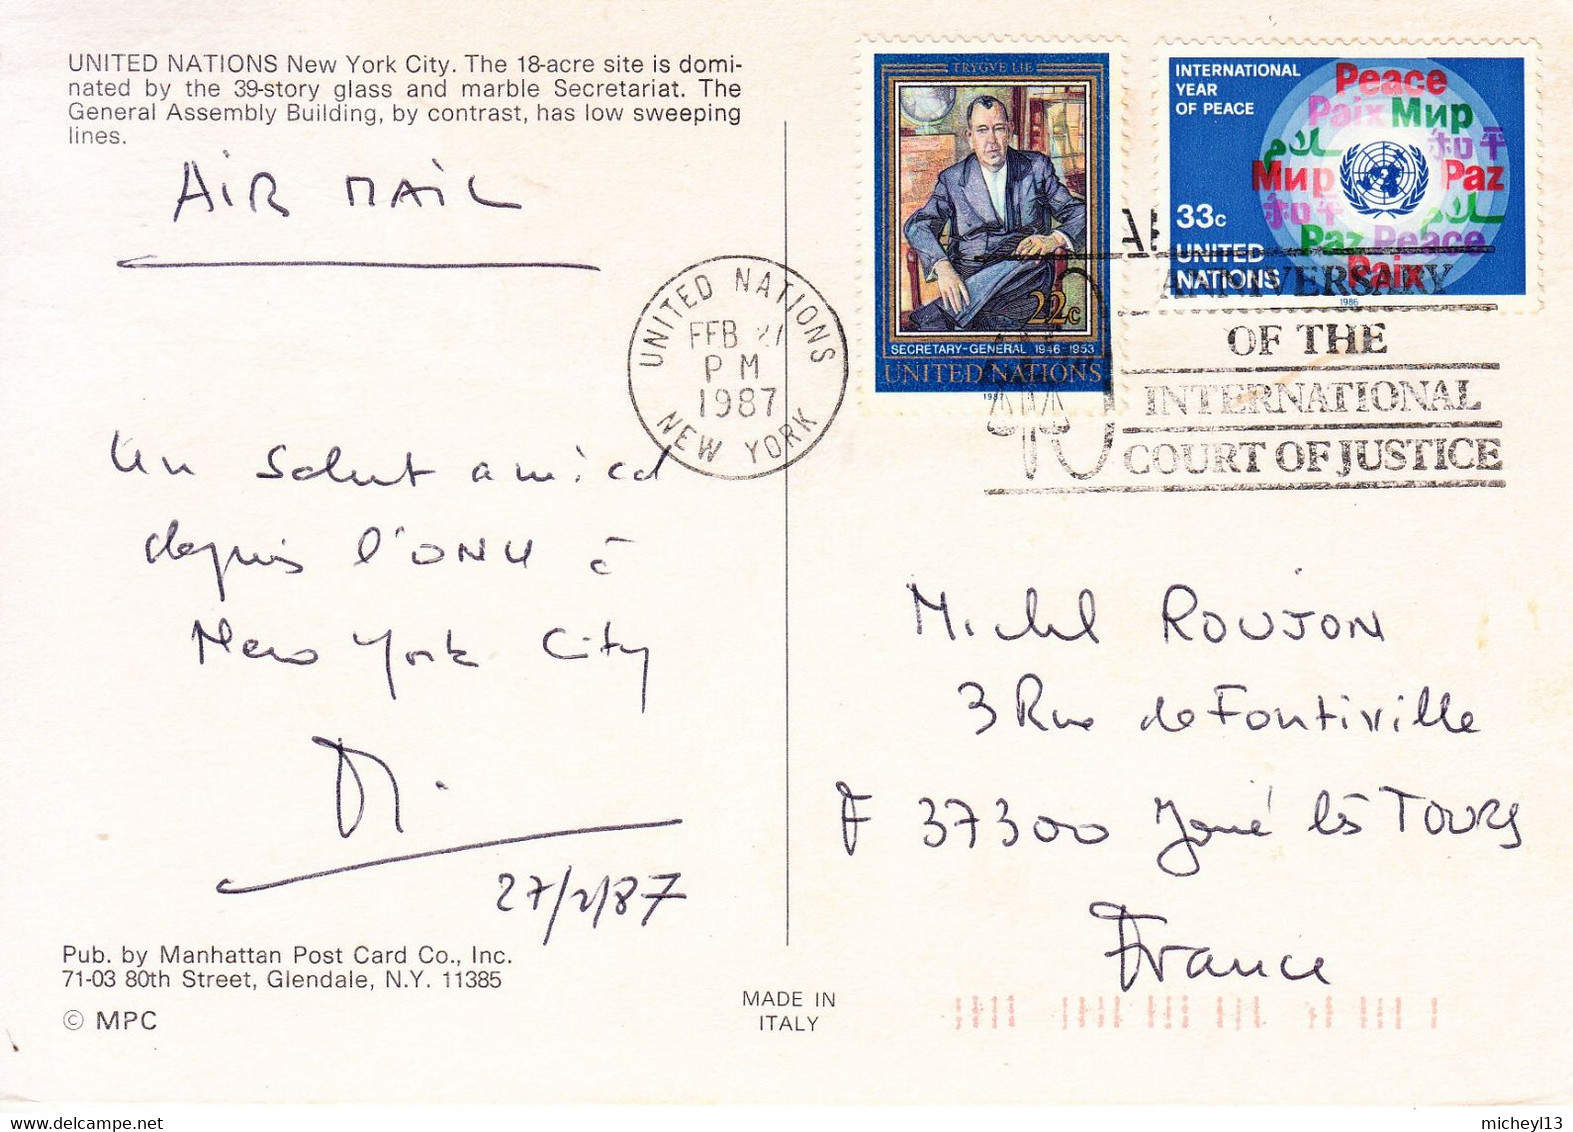 UNITED NATIONS New York City. The 18-acre site is domi-
nated by the 39-story glass and marble Secretariat. The
General Assembly Building, by contrast, has low sweeping
lines.
AIR MAIL
Un salut amical
depuis l'ONU à
New York City
27/2/87
Pub. by Manhattan Post Card Co., Inc.
71-03 80th Street, Glendale, N.Y. 11385
© MPC
MADE IN
ITALY
UNITED NATIONS
FEB 27
PM
1987
NEW YORK
TRYGVE LIE
22c
SECRETARY-GENERAL 1946-1953
UNITED NATIONS
1987
INTERNATIONAL
YEAR
OF PEACE
Peace
Paix Мир
سلام 和平
Мир Paz
和平 سلام
Paz Peace
Paix
33c
UNITED
NATIONS
1986
ANNIVERSARY
OF THE
INTERNATIONAL
COURT OF JUSTICE
Michel ROUJON
3 Rue de Fontiville
F 37300 Joué lès TOURS
France
micheyl13